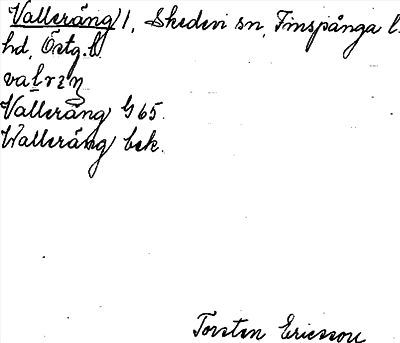 Vallerång 1, Skedevi sn, Finspånga l.
hd, Östg. l.
Vallerång G 65.
Wallerång bek.
Torsten Ericsson